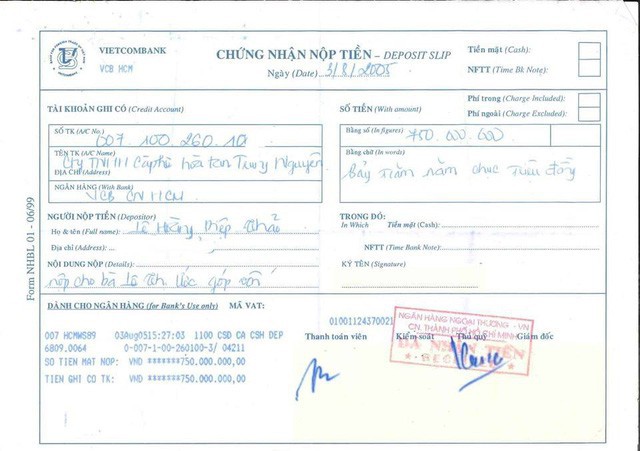 VIETCOMBANK
VCB HCM
CHỨNG NHẬN NỘP TIỀN – DEPOSIT SLIP
Ngày (Date) 3/8/2005
Tiền mặt (Cash):
NFTT (Time Bk Note):
Phí trong (Charge Included):
Phí ngoài (Charge Excluded):
TÀI KHOẢN GHI CÓ (Credit Account)
SỐ TK (A/C No.)
007.100.260.10
TÊN TK (A/C Name)
Cty TNHH Càphê hòa tan Trung Nguyên
ĐỊA CHỈ (Address)
NGÂN HÀNG (With Bank)
VCB CN HCM
SỐ TIỀN (With amount)
Bằng số (In figures) 750.000.000
Bằng chữ (In words)
Bảy trăm năm chục triệu đồng
NGƯỜI NỘP TIỀN (Depositor)
Họ & tên (Full name): Lê Hoàng Diệp Thảo
Địa chỉ (Address):
NỘI DUNG NỘP (Details):
nộp cho bà Lê Thị Ước góp vốn
TRONG ĐÓ:
In Which
Tiền mặt (Cash):
NFTT (Time Bank Note):
KÝ TÊN (Signature)
DÀNH CHO NGÂN HÀNG (for Bank's Use only) MÃ VAT:
01001124370021
007 HCMWS89 03Aug0515:27:03 1100 CSD CA CSH DEP
6809.0064 0-007-1-00-260100-3/ 04211
SO TIEN MAT NOP: VND *******750.000.000,00
TIEN GHI CO TK: VND *******750.000.000,00
Thanh toán viên Kiểm soát Thủ quỹ Giám đốc
NGÂN HÀNG NGOẠI THƯƠNG - VN
CN. THÀNH PHỐ HỒ CHÍ MINH
ĐÃ NHẬN TIỀN
Form NHBL 01 - 06/99